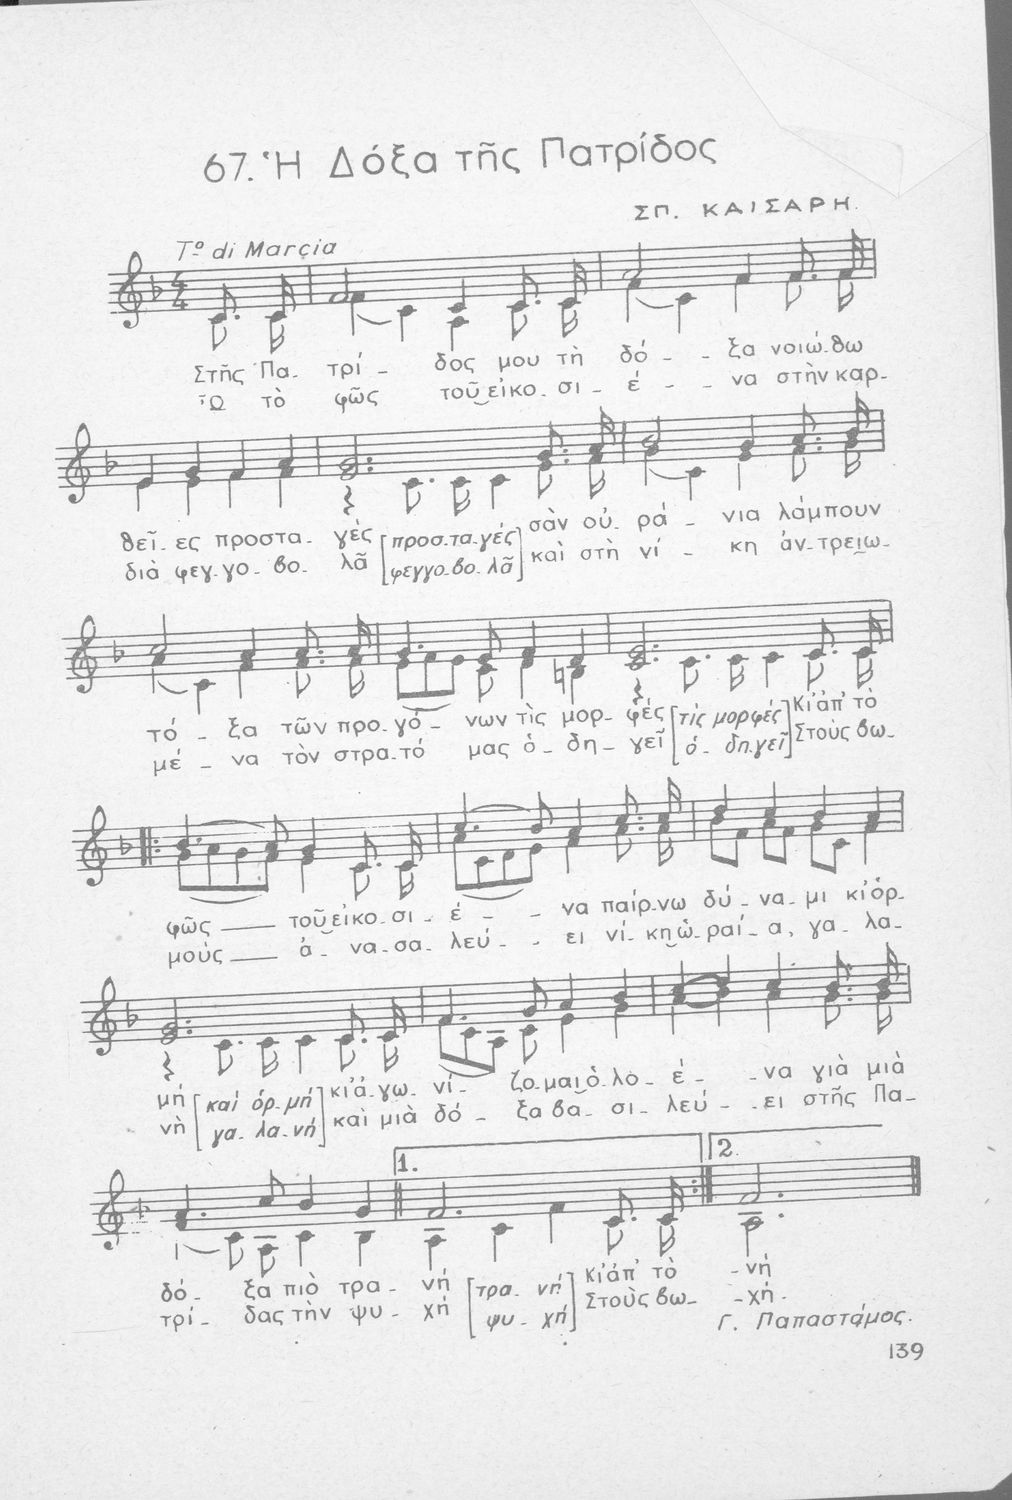 67. Ἡ Δόξα τῆς Πατρίδος
ΣΠ. ΚΑΙΣΑΡΗ.
Tº di Marcia
Στῆς Πα- τρί - δος μου τὴ δό - - ξα νοιώ-θω
Ὦ τὸ φῶς τοῦ εἰκο- σι - έ - - να στὴν καρ-
θεῖ- ες προστα- γὲς [προσ-τα-γές] σὰν οὐ- ρά - νια λάμπουν
διὰ φεγ-γο- βο- λᾶ [φεγγο-βο-λᾶ] καὶ στὴ νί - κη ἀν-τρειω-
τό - ξα τῶν προ-γό- νων τὶς μορ- φές [τὶς μορφές] Κι' ἀπ' τὸ
μέ - να τὸν στρα-τό μας ὁ- δη- γεῖ [ὁ- δη-γεῖ] Στοὺς βω-
φῶς — τοῦ εἰκο- σι- έ - - να παίρ-νω δύ- να- μι κι' ὁρ-
μοὺς — ἀ- να-σα- λεύ- - ει νί- κη ὡ-ραί- α, γα- λα-
μή [καί ὁρ-μή] κι' ἀ-γω- νί- ζο-μαι ὁ-λο- έ- -να γιὰ μιὰ
νὴ [γα-λα-νή] καὶ μιὰ δό - ξα βα- σι- λεύ- -ει στῆς Πα-
1. 2.
δό- ξα πιὸ τρα- νή [τρα- νή] Κι' ἀπ' τὸ -νή
τρί- δας τὴν ψυ- χή [ψυ- χή] Στοὺς βω- -χή.
Γ. Παπαστάμος.
139